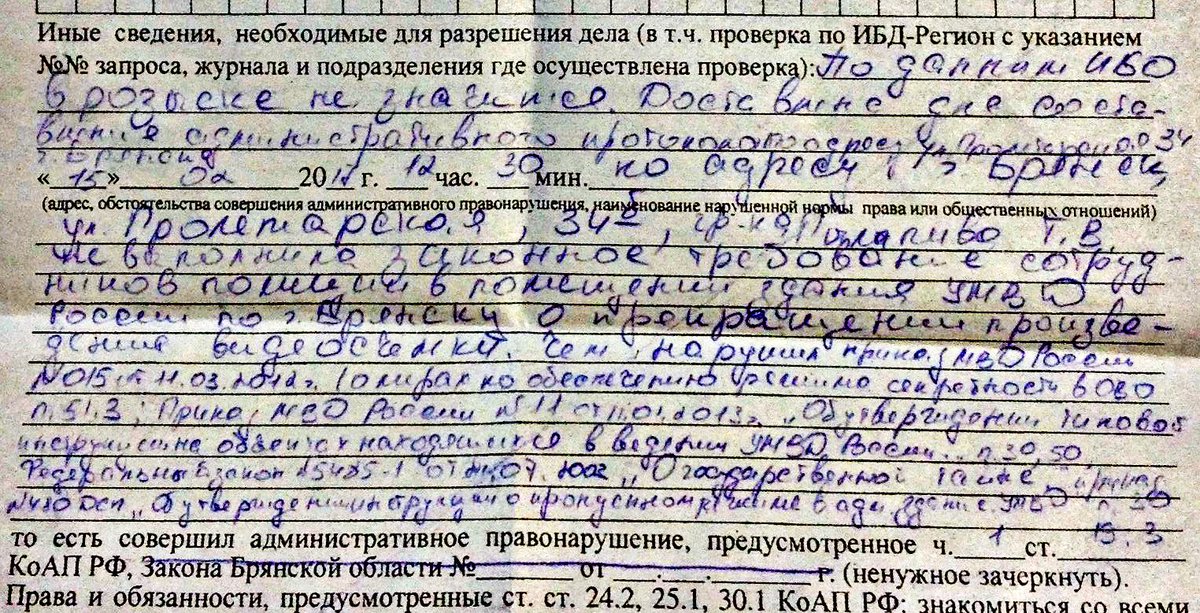 Иные сведения, необходимые для разрешения дела (в т.ч. проверка по ИБД-Регион с указанием
№№ запроса, журнала и подразделения где осуществлена проверка): По данным ИБД
в розыске не значится. Доставлена для соста-
вления административного протокола
г. Брянска
«15» 02 20 г. 12 час. 30 мин. по адресу: г. Брянск,
(адрес, обстоятельства совершения административного правонарушения, наименование нарушенной нормы права или общественных отношений)
ул. Пролетарская, 34, гр-ка Т.В.
не выполнила законное требование сотруд-
ников полиции в помещении здания УМВД
России по г. Брянску о прекращении произве-
дения видеосъемки, чем нарушил приказ МВД России
№ 015 от 11.03.2012г. по обеспечению режима секретности в ОВД
п.51.3; Приказ МВД России № 11 от 2013г. „Об утверждении типовой
инструкции на объектах находящихся в ведении УМВД России" п.30, 50,
Федеральный закон 5485-1 от „О государственной тайне", приказ
ДСП „Об утверждении инструкции о пропускном режиме в адм. здание УМВД п. 30
то есть совершил административное правонарушение, предусмотренное ч. 1 ст. 19.3
КоАП РФ, Закона Брянской области № от . . г. (ненужное зачеркнуть).
Права и обязанности, предусмотренные ст. ст. 24.2, 25.1, 30.1 КоАП РФ: знакомиться со всеми